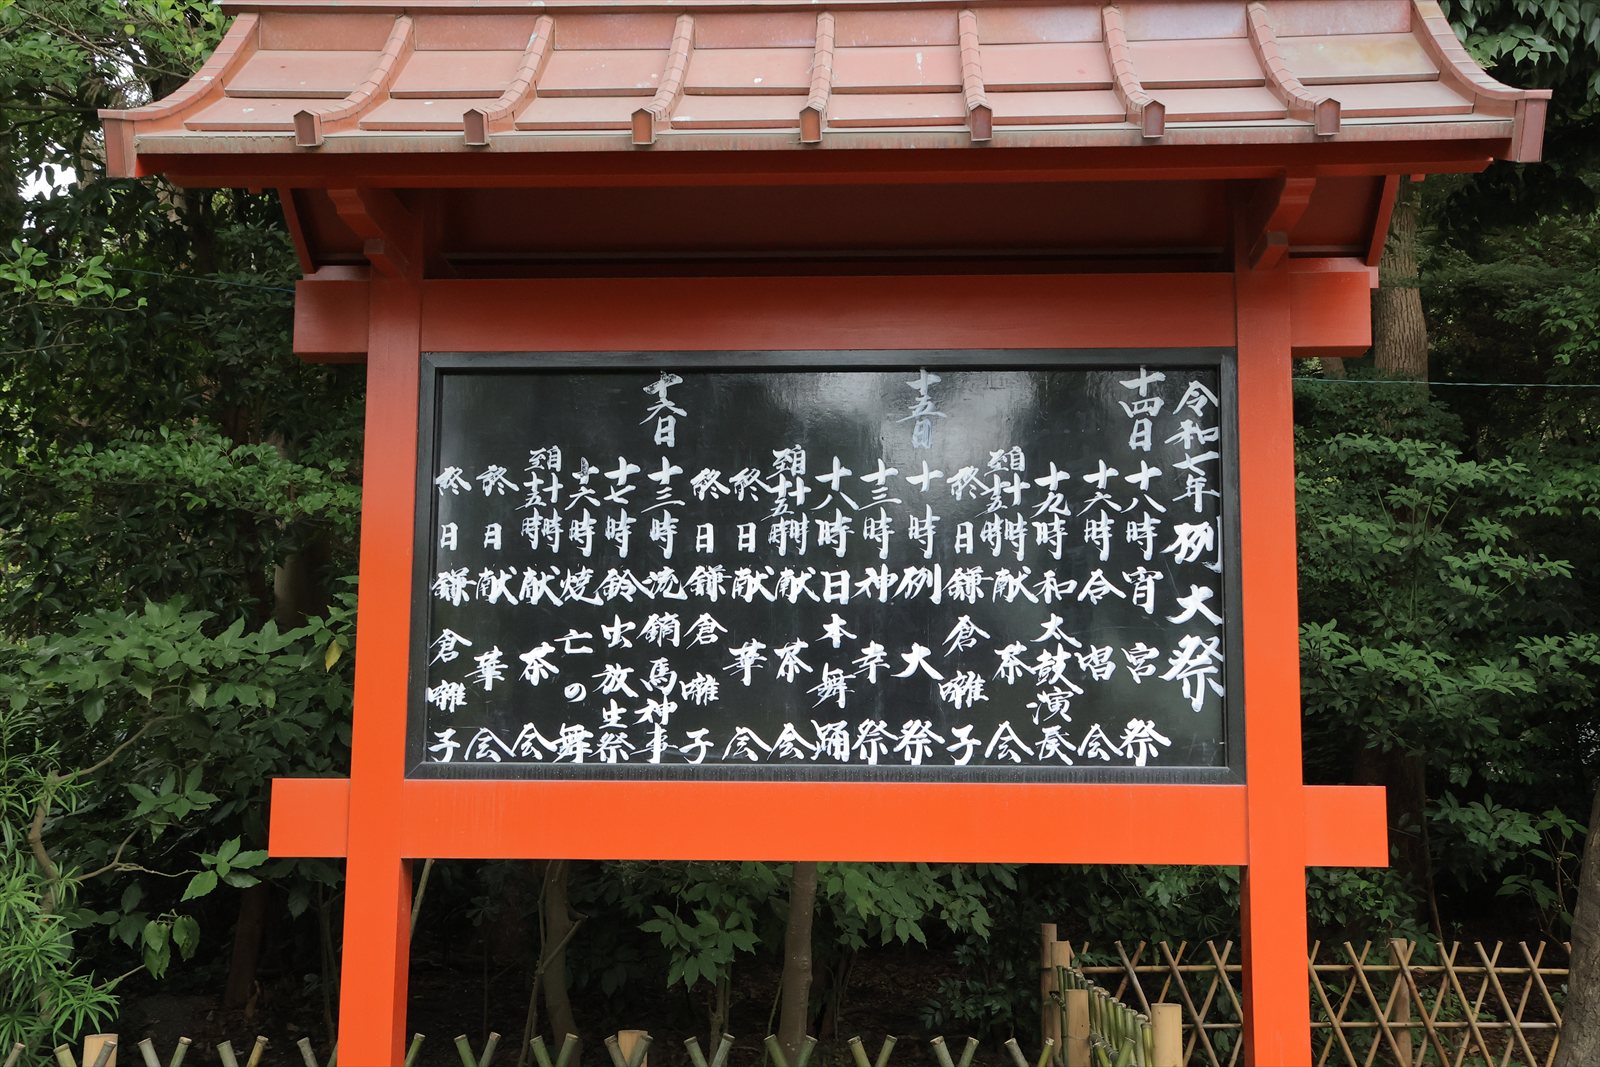 令和七年例大祭
十四日 十八時 宵宮祭
十六時 合唱会
十九時 和太鼓演奏会
自十時至十五時 献茶会
終日 鎌倉囃子
十五日 十時 例大祭
十三時 神幸祭
十八時 日本舞踊
自十時至十五時 献茶会
終日 献華会
終日 鎌倉囃子
十六日 十三時 流鏑馬神事
十七時 鈴虫放生祭
十六時 焼亡の舞
自十時至十五時 献茶会
終日 献華会
終日 鎌倉囃子